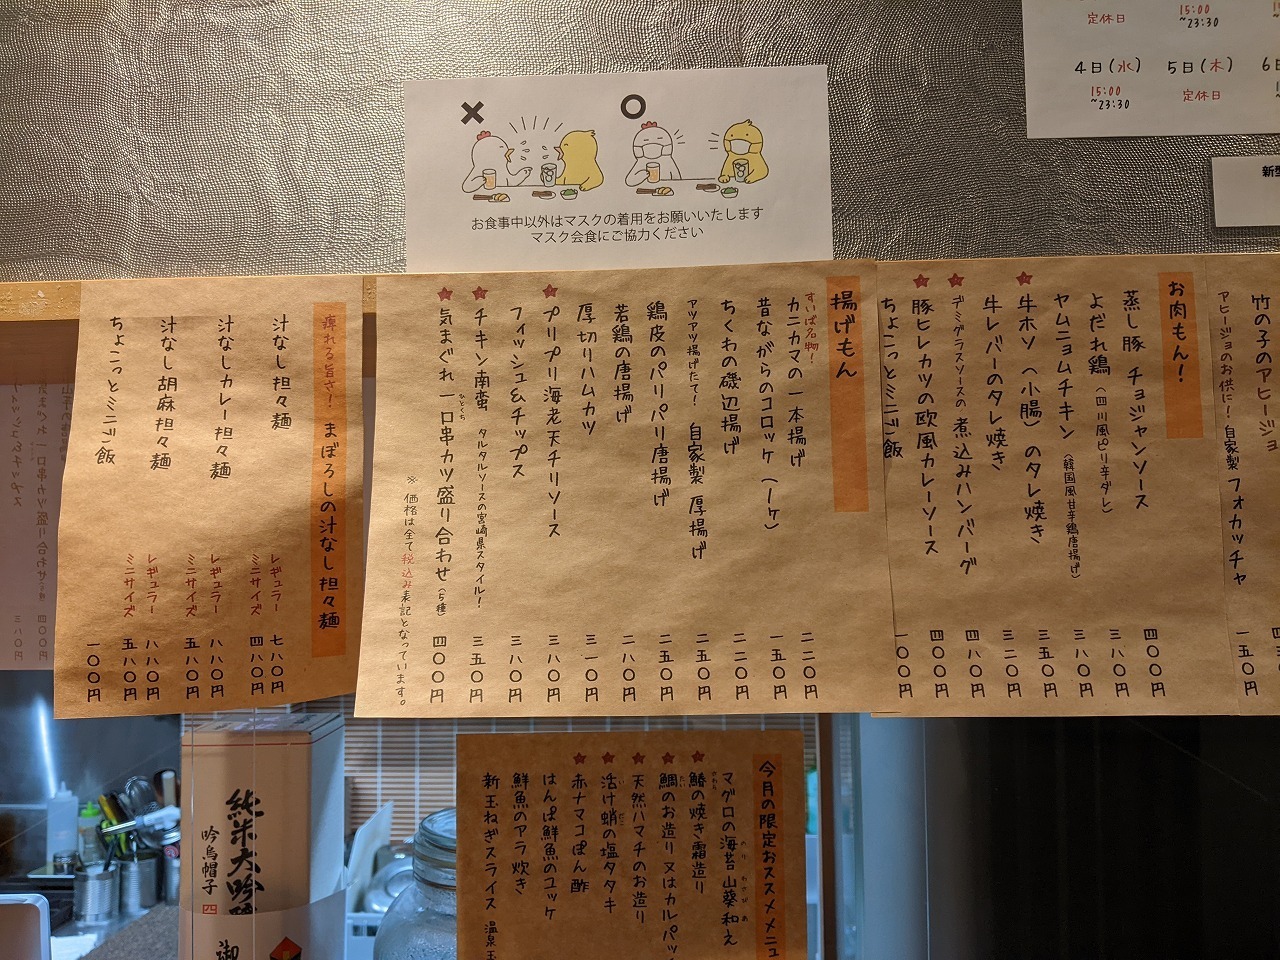 定休日
15:00
~23:30
4日(水)
5日(木)
15:00
~23:30
定休日
お食事中以外はマスクの着用をお願いいたします
マスク会食にご協力ください
竹の子のアヒージョ
アヒージョのお供に! 自家製 フォカッチャ 一五〇円
お肉もん!
蒸し豚 チョジャンソース 四〇〇円
よだれ鶏 (四川風ピリ辛ダレ) 三八〇円
ヤムニョムチキン (韓国風甘辛鶏唐揚げ) 三五〇円
★牛ホソ (小腸) のタレ焼き 三二〇円
牛レバーのタレ焼き 四八〇円
★デミグラスソースの 煮込みハンバーグ 四〇〇円
★豚ヒレカツの欧風カレーソース
ちょこっとミニご飯 一〇〇円
揚げもん
すいば名物!
カニカマの一本揚げ 二二〇円
昔ながらのコロッケ (一ケ) 一五〇円
ちくわの磯辺揚げ 二二〇円
アツアツ揚げたて! 自家製 厚揚げ 二五〇円
鶏皮のパリパリ唐揚げ 二五〇円
若鶏の唐揚げ 二八〇円
厚切りハムカツ 三一〇円
★プリプリ海老天チリソース 三八〇円
フィッシュ&チップス 三八〇円
★チキン南蛮 タルタルソースの宮崎県スタイル! 三五〇円
★気まぐれ 一口串カツ盛り合わせ (5種) 四〇〇円
ひとくち
※価格は全て税込み表記となっています。
痺れる旨さ! まぼろしの汁なし担々麺
汁なし担々麺 レギュラー 七八〇円
ミニサイズ 四八〇円
汁なしカレー担々麺 レギュラー 八八〇円
ミニサイズ 五八〇円
汁なし胡麻担々麺 レギュラー 八八〇円
ミニサイズ 五八〇円
ちょこっとミニご飯 一〇〇円
今月の限定おススメメニュ
マグロの海苔山葵和え
のり わさび あ
★鰆の焼き霜造り
さわら
★鯛のお造り又はカルパッ
たい
★天然ハマチのお造り
★活け蛸の塩タタキ
い だこ
★赤ナマコぽん酢
はんぱ鮮魚のユッケ
鮮魚のアラ炊き
新玉ねぎスライス 温泉玉
純米大吟醸
吟烏帽子